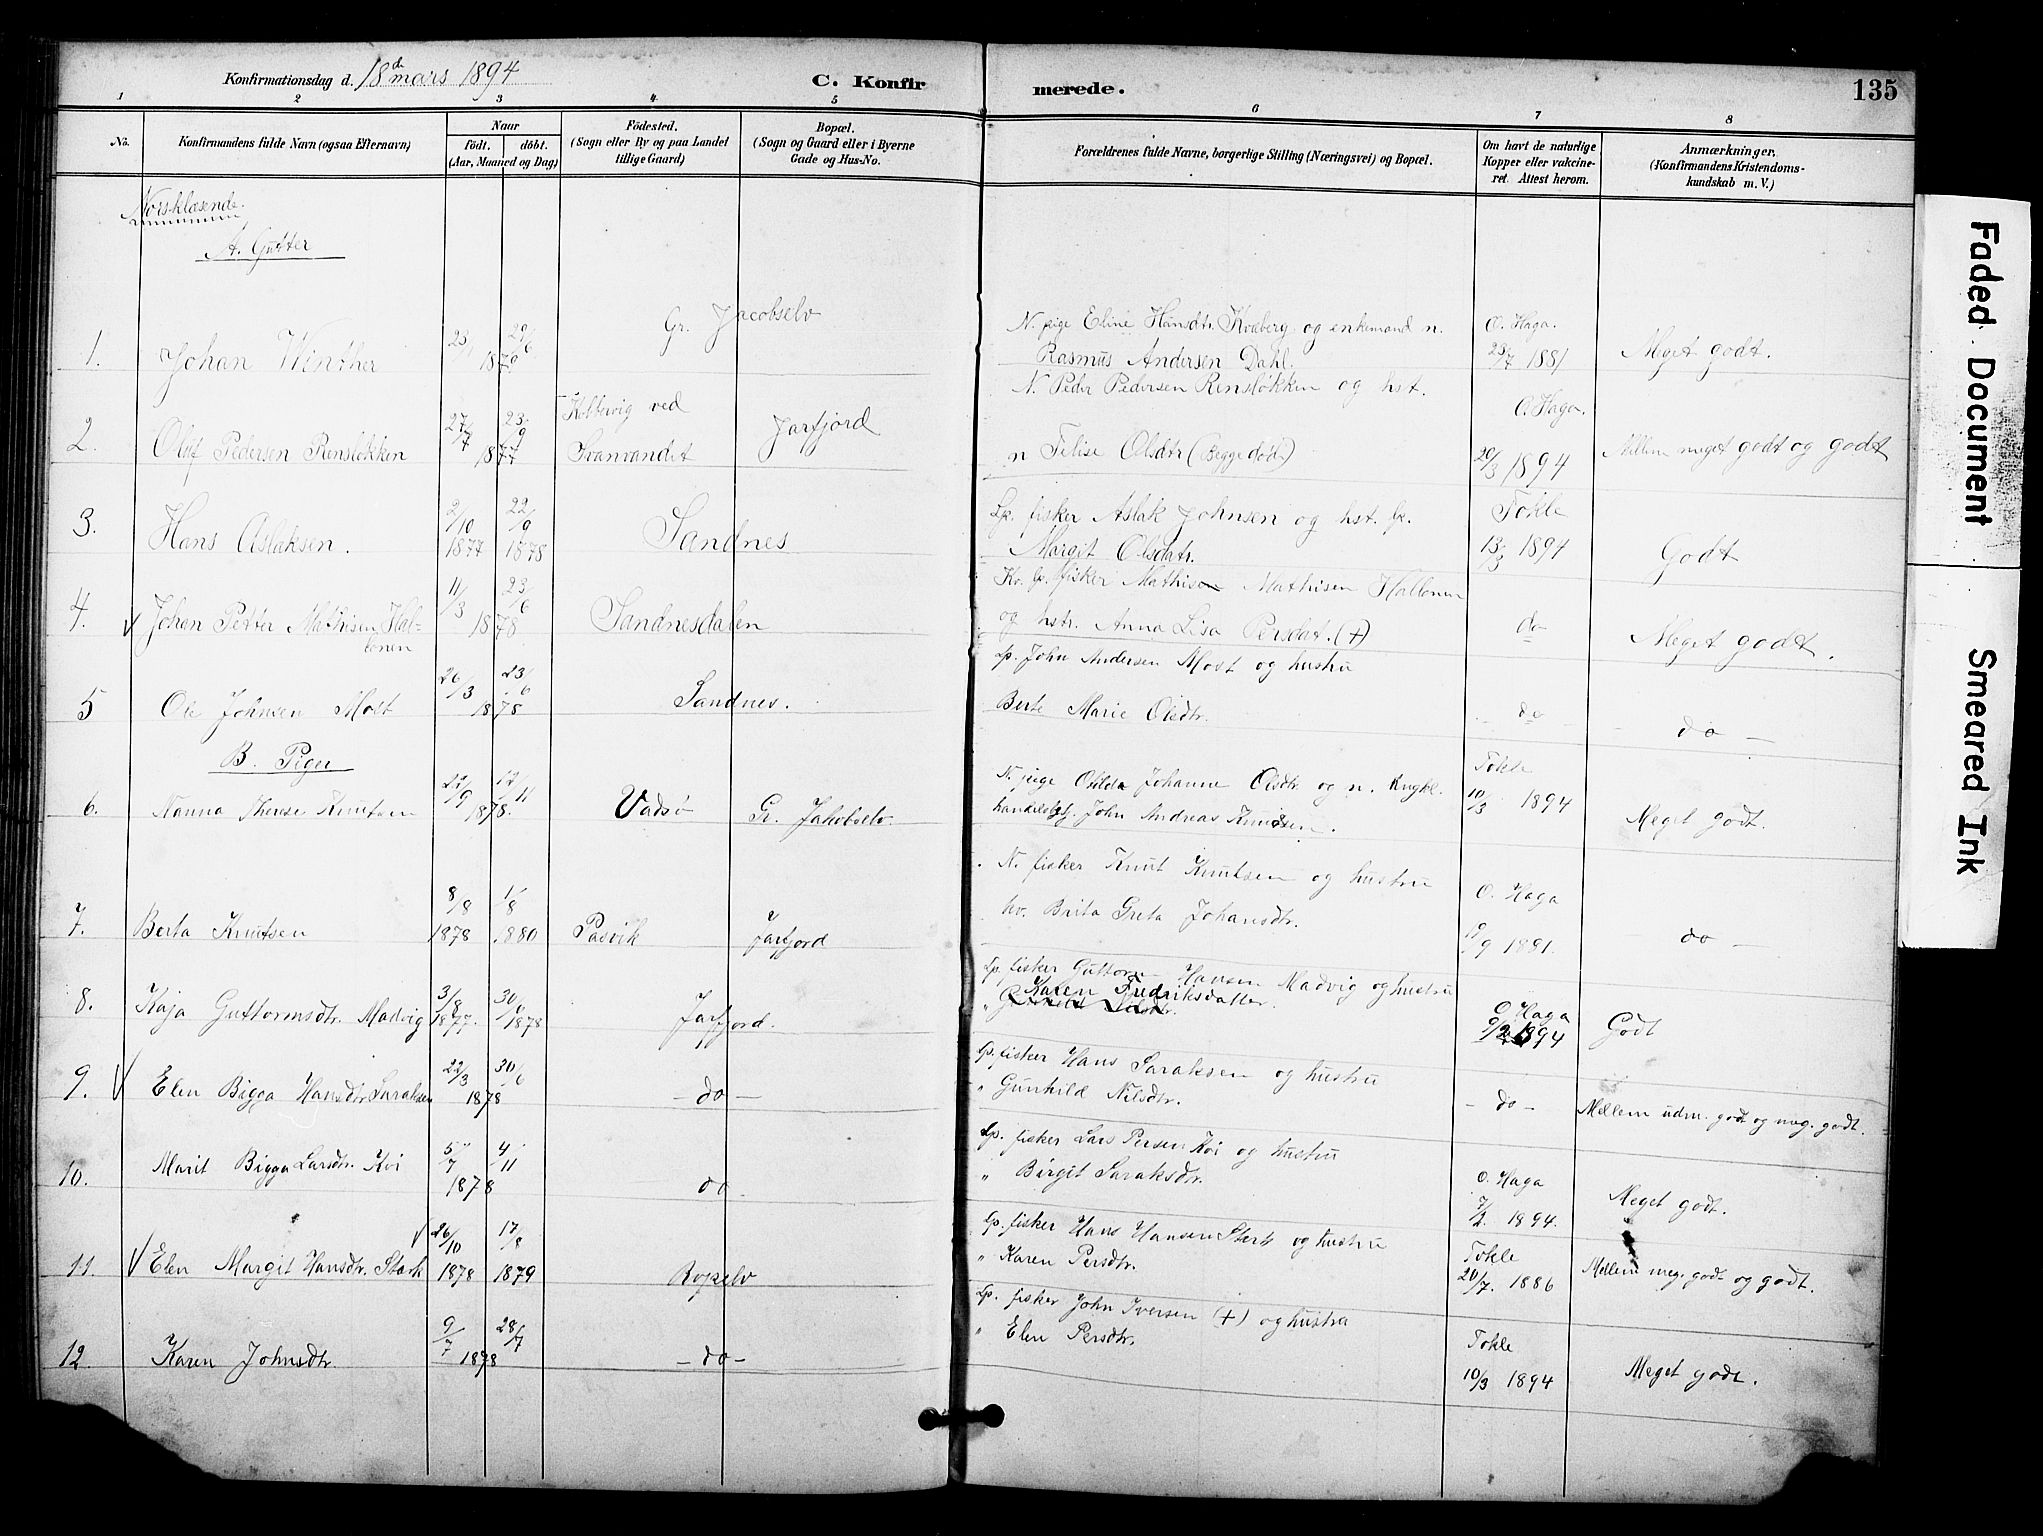 Konfirmationsdag d. 18de mars 1894
C. Konfirmerede.
135
1 2 3 4 5 6 7 8
No.
Konfirmandens fulde Navn (ogsaa Efternavn)
Naar
født. døbt.
(Aar, Maaned og Dag)
Fødested.
(Sogn eller By og paa Landet
tillige Gaard)
Bopæl.
(Sogn og Gaard eller i Byerne
Gade og Hus-No.
Forældrenes fulde Navne, borgerlige Stilling (Næringsvei) og Bopæl.
Om havt de naturlige
Kopper eller vakcine-
ret. Attest herom.
Anmærkninger.
(Konfirmandens Kristendoms-
kundskab m. V.)
Norsklæsende.
A. Gutter
1. Johan Winther
23/ 29/6 1879
Gr. Jacobselv
N. pige Eline Hansdtr. Kvaberg og enkemand n.
Rasmus Andersen Dahl.
O. Haga.
23/7 1881
Meget godt.
2. Oluf Pedersen Rensløkken
27/7 23/9 1877
Kobbervig ved
Svanvandet
Jarfjord
N. Peder Pedersen Rensløkken og hst.
n Felise Olsdtr (Begge død.)
O. Haga.
20/3 1894
Mellem meget godt og godt
3. Hans Aslaksen.
2/10 1877
22/9 1878
Sandnes
Lp. fisker Aslak Johnsen og hst. lp.
Margit Olsdatr.
Tokle
13/3 1894
Godt
4. Johan Petter Mathisen Hal-
lonen
11/3 23/6 1878
Sandnesdalen
Kv. lp. fisker Mathis Mathisen Hallonen
og hstr. Anna Lisa Persdat. (+)
do
Meget godt.
5 Ole Johnsen Most
26/3 23/6 1878
Sandnes.
Lp. John Andersen Most og hustru
Berte Marie Olsdtr.
do
do
B. Piger
6. Nanna Therese Knutsen
22/9 12/11 1878.
Vadsø
Gr. Jakobselv.
N. pige Otilde Johanne Olsdtr og n. ungkl.
handelsbtj. John Andreas Knudsen.
Tokle
10/3 1894
Meget godt.
7. Berta Knutsen
8/8 1878
1/8 1880
Pasvik
Jarfjord
N. fisker Knut Knutsen og hustru
kv. Brita Greta Johansdtr.
O. Haga
19/9 1881.
do
8. Kaja Guttormsdtr. Madvig
3/8 1877.
30/6 1878
Jarfjord.
Lp. fisker Guttorm Hansen Madvig og hustru
" Karen Fredriksdatter.
O Haga
9/2 1894
Godt
9. Elen Bigga Hansdtr. Saraksen
22/3 30/6 1878
- do -
Lp. fisker Hans Saraksen og hustru
" Gunhild Nilsdtr.
- do -
Mellem udm. godt og meg. godt.
10. Marit Bigga Larsdtr. Koi
5/7 4/11 1878
do
Lp. fisker Lars Persen Koi og hustru
" Birgit Saraksdtr.
O. Haga
7/2. 1894.
Meget godt.
11. Elen Margit Hansdtr. Stark
26/10 1878
17/8 1879
Bopselv
Lp. fisker Hans Hansen Stark og hustru
" Karen Persdtr.
Tokle
20/7. 1886
Mellem meg. godt og godt.
12. Karen Johnsdtr.
9/7 28/7 1878
- do -
Lp. fisker John Iversen (+) og hustru
" Elen Persdtr.
Tokle
10/3 1894
Meget godt.
Faded Document
Smeared Ink